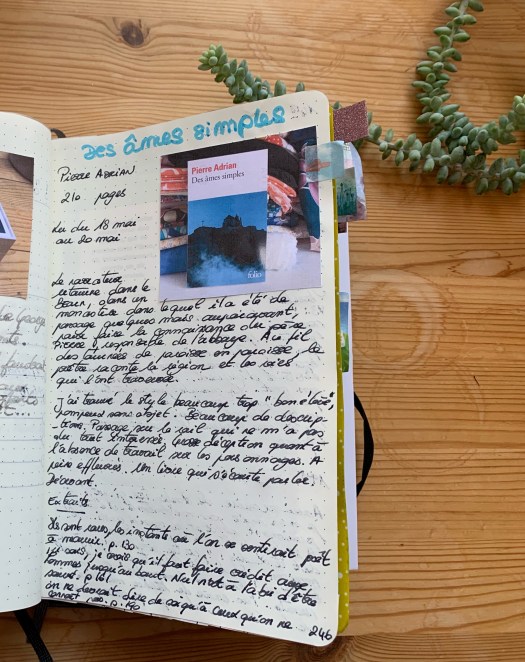 Des âmes simples
Pierre ADRIAN
210 pages
Lu du 18 mai
au 20 mai
Pierre Adrian
Des âmes simples
folio
Le narrateur
retourne dans le
Béarn, dans un
monastère dans lequel il a été de
passage quelques mois auparavant,
faire la connaissance du père
Pierre, responsable de l'abbaye. Au fil
des tournées de paroisse en paroisse, le
prêtre raconte la région et les vies
qui l'ont traversée.
J'ai trouvé le style beaucoup trop "bon élève",
pompeux sans objet. Beaucoup de descrip-
-tions. Passage sur le rail qui ne m'a pas
du tout intéressée. Grosse déception quant à
l'absence de travail sur les personnages. A
peine effleurés. Un livre qui s'écoute parler.
Décevant.
Extraits
Ils sont rares, les instants où l'on se sentirait prêt
à mourir. p. 130
je crois qu'il faut faire crédit aux
hommes jusqu'au bout. Nul n'est à l'abri d'être
sauvé. p. 161
on ne devrait dire du mal qu'à ceux qu'on ne
connaît pas. p. 190
246